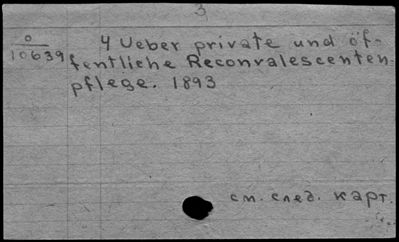 3
0
10639
4 Ueber private und öf-
fentliche Reconvalescenten-
pflege. 1893
см. след. карт.